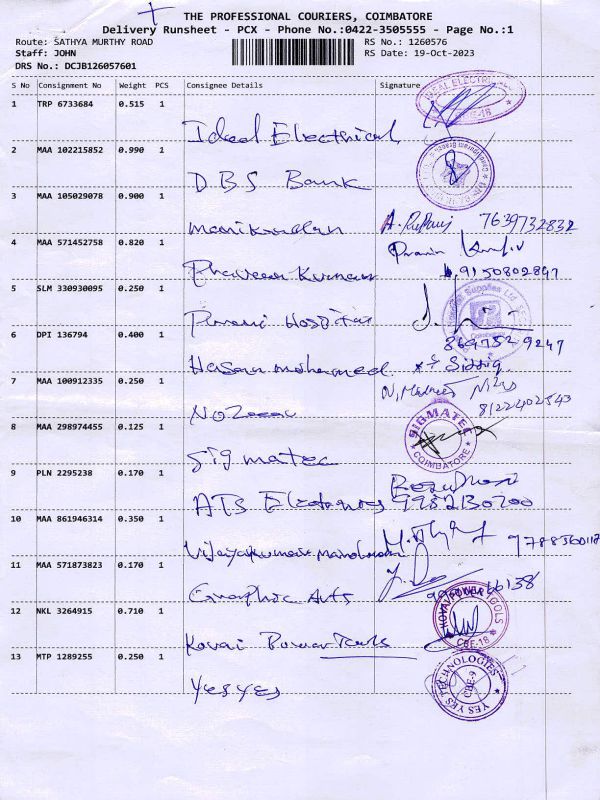 THE PROFESSIONAL COURIERS, COIMBATORE
Delivery Runsheet - PCX - Phone No.:0422-3505555 - Page No.:1
Route: SATHYA MURTHY ROAD RS No.: 1260576
Staff: JOHN RS Date: 19-Oct-2023
DRS No.: DCJB126057601
S No Consignment No Weight PCS Consignee Details Signature
1 TRP 6733684 0.515 1 Ideal Electrical
2 MAA 102215852 0.990 1 DBS Bank
3 MAA 105029078 0.900 1 manikandan 7639732832
4 MAA 571452758 0.820 1 Phaveen Kumar 9150802847
5 SLM 330930095 0.250 1 Hospital
6 DPI 136794 0.400 1 Hasan mohamed 8697529247
7 MAA 100912335 0.250 1 8122402543
8 MAA 298974455 0.125 1 Sigmatec SIGMATEC COIMBATORE
9 PLN 2295238 0.170 1 ATS
10 MAA 861946314 0.350 1 Vijayakumar
11 MAA 571873823 0.170 1 Graphic Arts
12 NKL 3264915 0.710 1 Kovai Power Tools KOVAI POWER TOOLS CBE-18
13 MTP 1289255 0.250 1 yes yes YES YES TECHNOLOGIES CBE-9